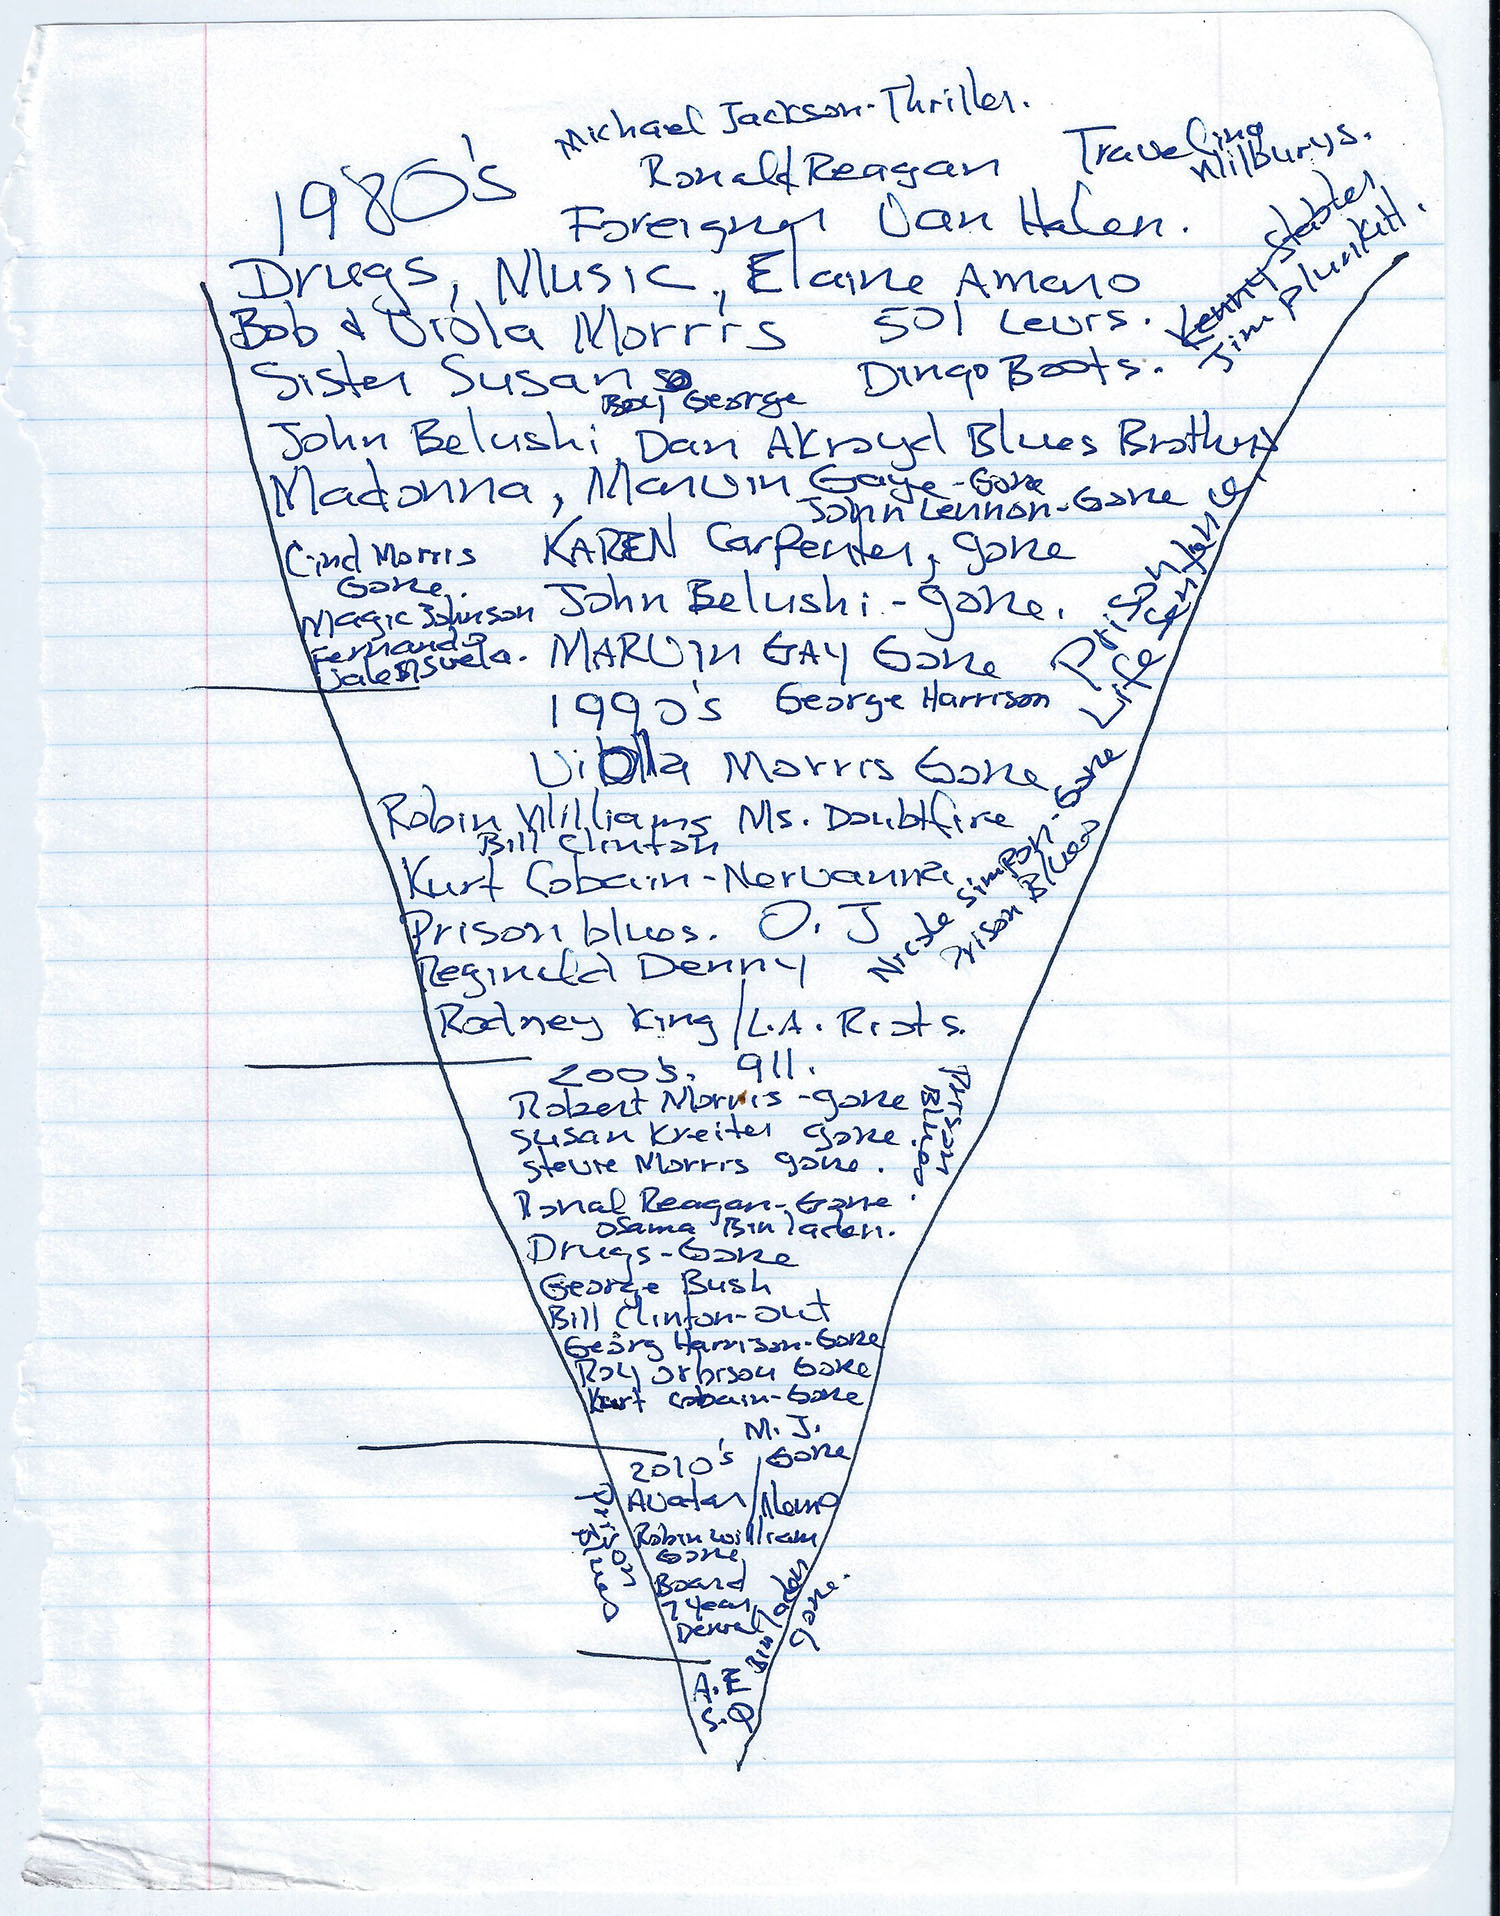 Michael Jackson-Thriller.
1980's
Ronald Reagan
Traveling
Wilburys.
Foreigner Van Halen.
Kenny Stabler,
Jim Plunkitt.
Drugs, Music, Elaine Amaro
Bob & Viola Morris 501 Levis.
Sister Susan
Dingo Boots.
Boy George
John Belushi, Dan Akroyd Blues Brothers
Madonna, Marvin Gaye-Gone
John Lennon-Gone
Cind Morris
Gone.
KAREN Carpenter, gone
Magic Johnson
John Belushi-gone.
Fernando
Valensuela.
MARVIN GAY Gone
Prison
Life Sentence.
1990's George Harrison
Viola Morris Gone
Robin Williams Ms. Doubtfire
Bill Clinton
Kurt Cobain-Nervanna
Nicole Simpson-Gone
Prison Blues
Prison blues. O.J
Reginald Denny
Rodney King/L.A. Riots.
200's. 911.
Robert Morris-gone
Susan Kreiter gone.
Stevie Morris gone.
Prison
Blues.
Ronal Reagan-Gone
Osama Bin laden.
Drugs-Gone
George Bush
Bill Clinton-out
Georg Harrison-Gone
Roy orbison Gone
Kurt Cobain-Gone
M.J.
Gone
2010's
Avatar/Nemo
Prison
Blues
Robin William
Gone
Board
7 year
Denial
Bin laden
gone.
A.E
S.Q